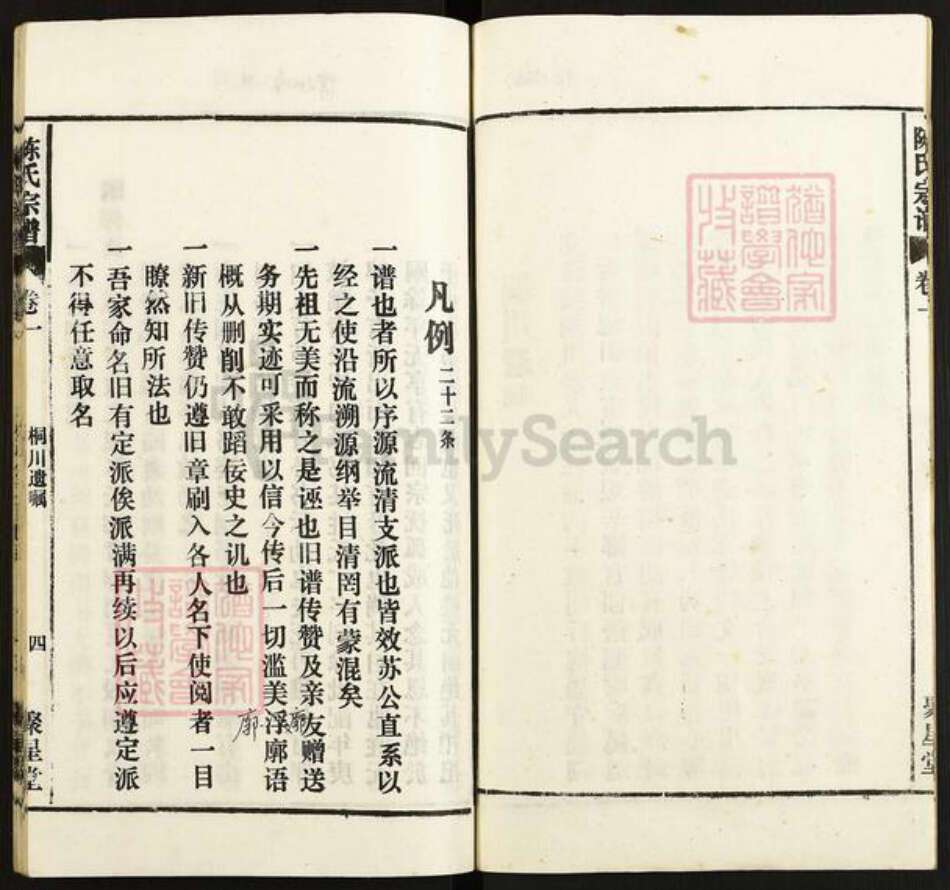 陈氏宗谱
卷一
聚星堂
凡例 二十三条
一谱也者所以序源流清支派也皆效苏公直系以
经之使沿流溯源纲举目清罔有蒙混矣
一先祖无美而称之是诬也旧谱传赞及亲友赠送
务期实迹可采用以信今传后一切滥美浮廓语
概从删削不敢蹈佞史之讥也
一新旧传赞仍遵旧章刷入各人名下使阅者一目
瞭然知所法也
一吾家命名旧有定派俟派满再续以后应遵定派
不得任意取名
廓
陈氏宗谱
卷一
桐川遗嘱
四
聚星堂
FamilySearch